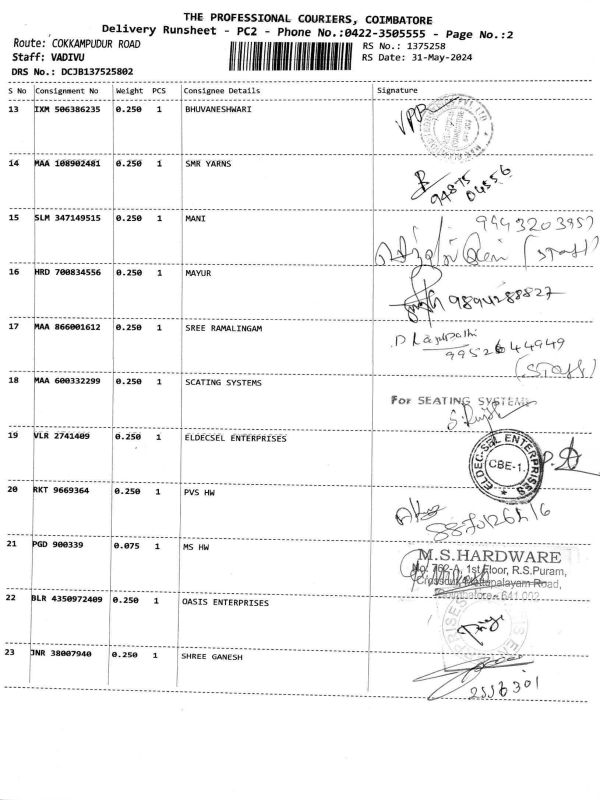 THE PROFESSIONAL COURIERS, COIMBATORE
Delivery Runsheet - PC2 - Phone No.:0422-3505555 - Page No.:2
Route: COKKAMPUDUR ROAD
RS No.: 1375258
Staff: VADIVU
RS Date: 31-May-2024
DRS No.: DCJB137525802
S No Consignment No Weight PCS Consignee Details Signature
13 IXM 506386235 0.250 1 BHUVANESHWARI
14 MAA 108902481 0.250 1 SMR YARNS
94875
04556
15 SLM 347149515 0.250 1 MANI
9443203957
(STAFF)
16 HRD 700834556 0.250 1 MAYUR
9894288827
17 MAA 866001612 0.250 1 SREE RAMALINGAM
9952644949
(STAFF)
18 MAA 600332299 0.250 1 SCATING SYSTEMS
For SEATING SYSTEMS
19 VLR 2741409 0.250 1 ELDECSEL ENTERPRISES
ELDEC-SEL ENTERPRISES
CBE-1.
20 RKT 9669364 0.250 1 PVS HW
21 PGD 900339 0.075 1 MS HW
M.S.HARDWARE
No. 762-A, 1st Floor, R.S.Puram,
Road,
Coimbatore - 641 002
22 BLR 4350972409 0.250 1 OASIS ENTERPRISES
23 JNR 38007940 0.250 1 SHREE GANESH
2556301